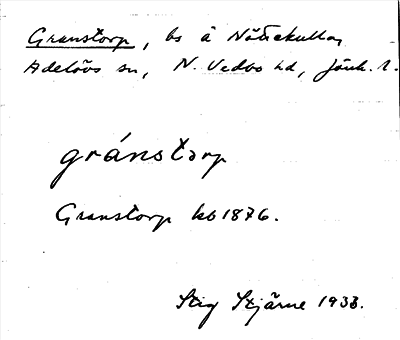 Granstorp, bs å Nättekulla,
Adelövs sn, N. Vedbo hd, Jönk. l.
gránstɔrp
Granstorp kb 1876.
Stig Stjärne 1933.